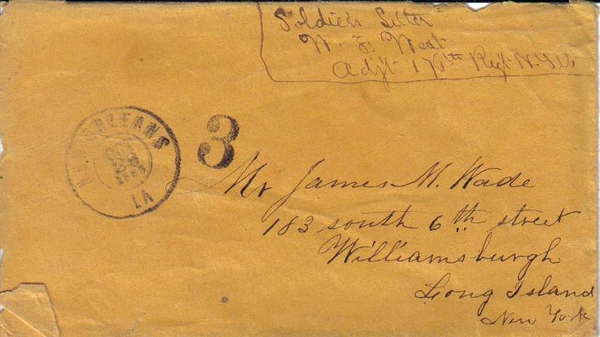 Soldiers Letter
W. F. West
Adjt 17th Regt N.Y.V.
NEW ORLEANS
LA
3
Mr James M. Wade
183 south 6th street
Williamsburgh
Long Island
New York